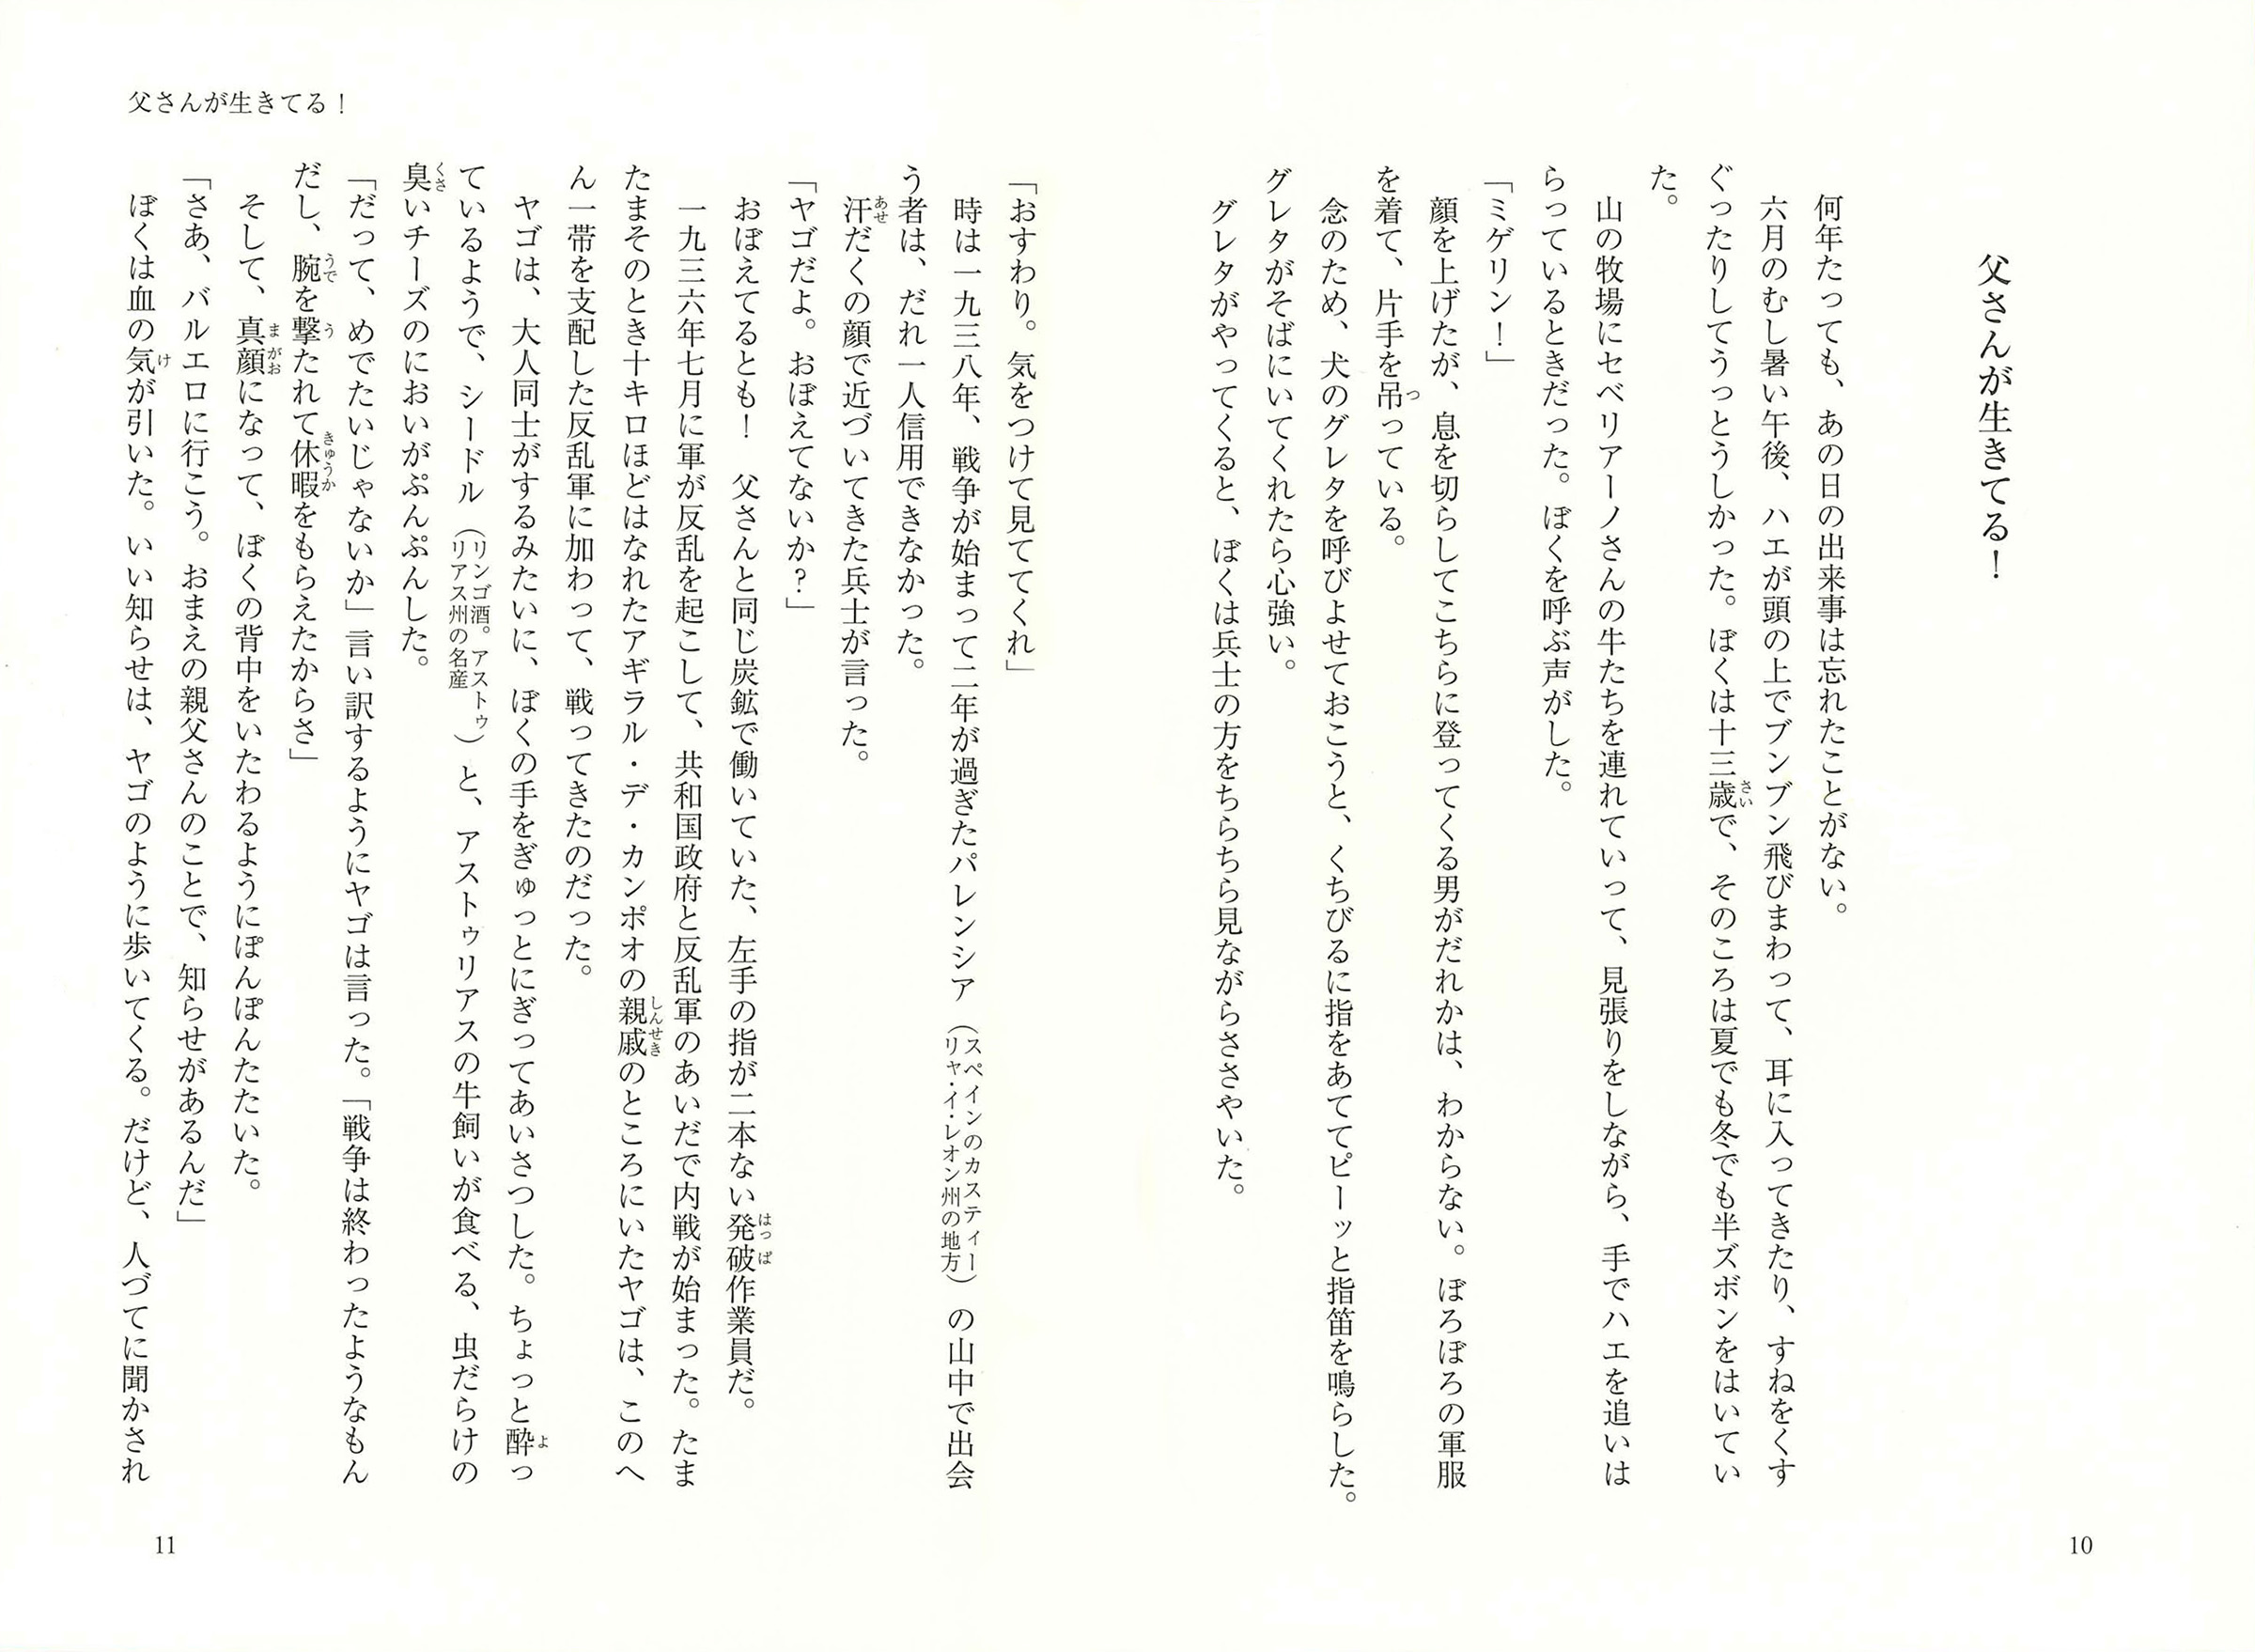 父さんが生きてる！
何年たっても、あの日の出来事は忘れたことがない。
六月のむし暑い午後、ハエが頭の上でブンブン飛びまわって、耳に入ってきたり、すねをくす
ぐったりしてうっとうしかった。ぼくは十三歳で、そのころは夏でも冬でも半ズボンをはいてい
た。
山の牧場にセベリアーノさんの牛たちを連れていって、見張りをしながら、手でハエを追いは
らっているときだった。ぼくを呼ぶ声がした。
「ミゲリン！」
顔を上げたが、息を切らしてこちらに登ってくる男がだれかは、わからない。ぼろぼろの軍服
を着て、片手を吊っている。
念のため、犬のグレタを呼びよせておこうと、くちびるに指をあててピーッと指笛を鳴らした。
グレタがそばにいてくれたら心強い。
グレタがやってくると、ぼくは兵士の方をちらちら見ながらささやいた。
10
「おすわり。気をつけて見ててくれ」
時は一九三八年、戦争が始まって二年が過ぎたパレンシア（スペインのカスティーリャ・イ・レオン州の地方）の山中で出会
う者は、だれ一人信用できなかった。
汗だくの顔で近づいてきた兵士が言った。
「ヤゴだよ。おぼえてないか？」
おぼえてるとも！　父さんと同じ炭鉱で働いていた、左手の指が二本ない発破作業員だ。
一九三六年七月に軍が反乱を起こして、共和国政府と反乱軍のあいだで内戦が始まった。たま
たまそのとき十キロほどはなれたアギラル・デ・カンポオの親戚のところにいたヤゴは、このへ
ん一帯を支配した反乱軍に加わって、戦ってきたのだった。
ヤゴは、大人同士がするみたいに、ぼくの手をぎゅっとにぎってあいさつした。ちょっと酔っ
ているようで、シードル（リンゴ酒。アストゥリアス州の名産）と、アストゥリアスの牛飼いが食べる、虫だらけの
臭いチーズのにおいがぷんぷんした。
「だって、めでたいじゃないか」言い訳するようにヤゴは言った。「戦争は終わったようなもん
だし、腕を撃たれて休暇をもらえたからさ」
そして、真顔になって、ぼくの背中をいたわるようにぽんぽんたたいた。
「さあ、バルエロに行こう。おまえの親父さんのことで、知らせがあるんだ」
ぼくは血の気が引いた。いい知らせは、ヤゴのように歩いてくる。だけど、人づてに聞かされ
父さんが生きてる！
11